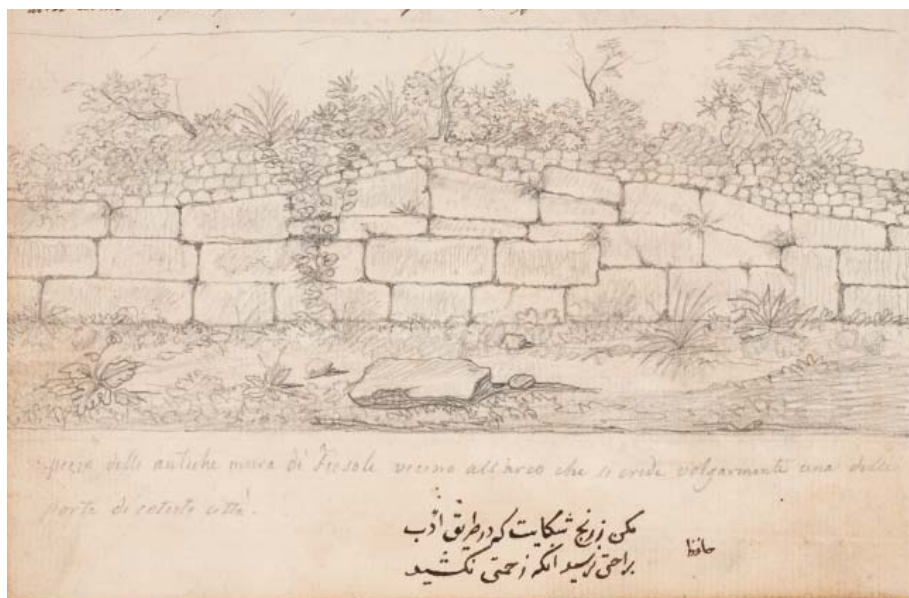 pezzo delle antiche mura di Fiesole vicino all'arco che si crede volgarmente una delle
porte di cotesta città.
مکن ز رنج شکایت که در طریق ادب
حافظ
براحتی نرسید انکه زحمتی نکشید